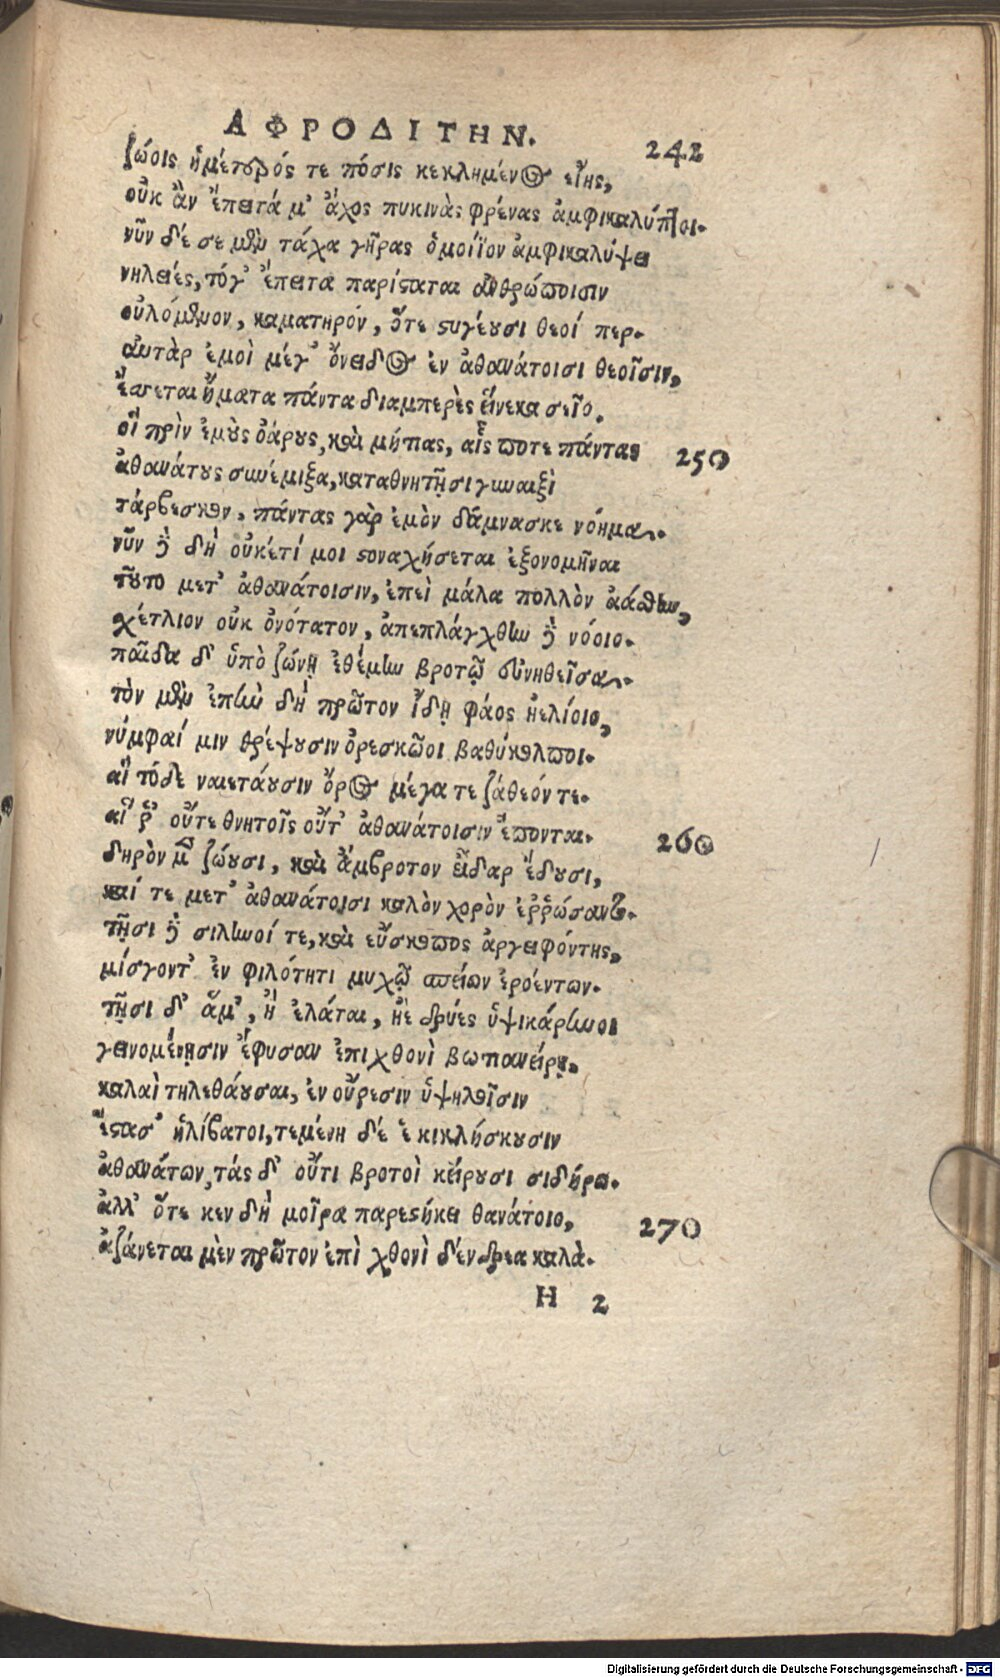 ΑΦΡΟΔΙΤΗΝ. 242
ζώοις ἡμέτερός τε πόσις κεκλημένος εἴης,
οὐκ ἂν ἔπειτά μ' ἄχος πυκινὰς φρένας ἀμφικαλύπτοι.
νῦν δέ σε μὲν τάχα γῆρας ὁμοίϊον ἀμφικαλύψει
νηλειές, τόγ' ἔπειτα παρίσταται ἀνθρώποισιν
οὐλόμενον, καματηρόν, ὅτε στυγέουσι θεοί περ.
αὐτὰρ ἐμοὶ μέγ' ὄνειδος ἐν ἀθανάτοισι θεοῖσιν,
ἔσσεται ἤματα πάντα διαμπερὲς εἵνεκα σεῖο.
οἳ πρὶν ἐμοὺς ὀάρους, καὶ μήτιας, αἷς ποτε πάντας 250
ἀθανάτους συνέμιξα, καταθνητῇσι γυναιξὶ
τάρβεσκον, πάντας γὰρ ἐμὸν δάμνασκε νόημα.
νῦν δὲ δὴ οὐκέτί μοι στοναχήσεται ἐξονομῆναι
τοῦτο μετ' ἀθανάτοισιν, ἐπεὶ μάλα πολλὸν ἀάσθην,
σχέτλιον οὐκ ὀνότατον, ἀπεπλάγχθην δὲ νόοιο.
παῖδα δ' ὑπὸ ζώνῃ ἐθέμην βροτῷ εὐνηθεῖσα.
τὸν μὲν ἐπὴν δὴ πρῶτον ἴδῃ φάος ἠελίοιο,
νύμφαί μιν θρέψουσιν ὀρεσκῶοι βαθύκολποι.
αἳ τόδε ναιετάουσιν ὄρος μέγα τε ζάθεόν τε.
αἵ ῥ' οὔτε θνητοῖς οὔτ' ἀθανάτοισιν ἕπονται. 260
δηρὸν μὲν ζώουσι, καὶ ἄμβροτον εἶδαρ ἔδουσι,
καί τε μετ' ἀθανάτοισι καλὸν χορὸν ἐῤῥώσαντο.
τῇσι δὲ σιληνοί τε, καὶ εὔσκοπος ἀργειφόντης,
μίσγοντ' ἐν φιλότητι μυχῷ σπείων ἐροέντων.
τῇσι δ' ἅμ', ἢ ἐλάται, ἠὲ δρύες ὑψικάρηνοι
γεινομένῃσιν ἔφυσαν ἐπιχθονὶ βωτιανείρῃ.
καλαὶ τηλεθάουσαι, ἐν οὔρεσιν ὑψηλοῖσιν
ἕστασ' ἠλίβατοι, τεμένη δέ ἑ κικλήσκουσιν
ἀθανάτων, τάς δ' οὔτι βροτοὶ κείρουσι σιδήρῳ.
ἀλλ' ὅτε κεν δὴ μοῖρα παρεστήκει θανάτοιο, 270
ἀζάνεται μὲν πρῶτον ἐπὶ χθονὶ δένδρεα καλὰ.
H 2
Digitalisierung gefördert durch die Deutsche Forschungsgemeinschaft - DFG